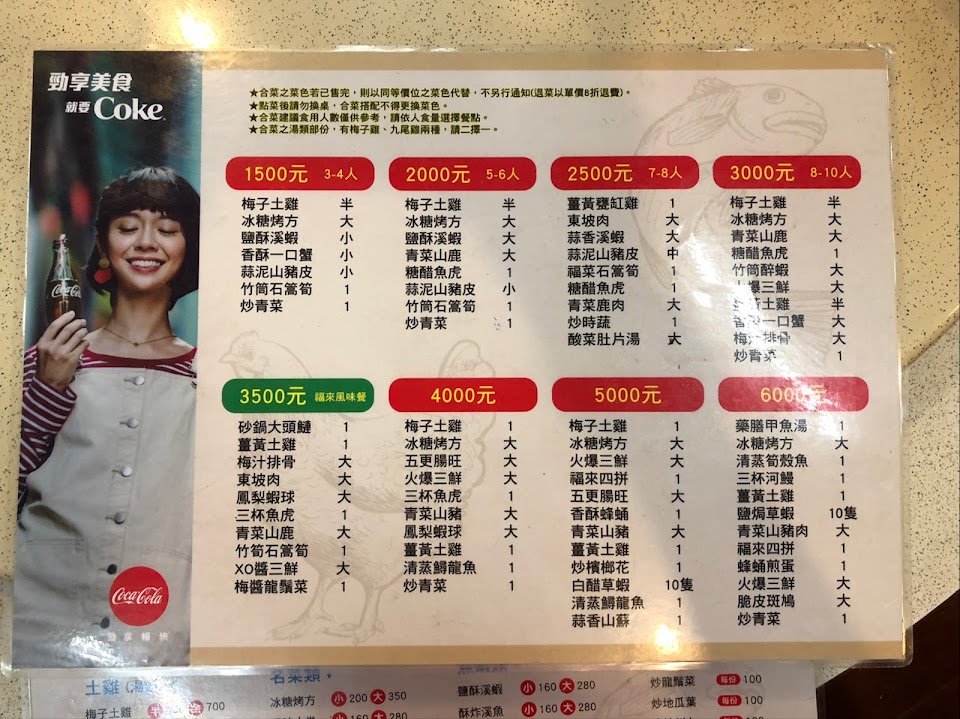 勁享美食
就要 Coke
★合菜之菜色若已售完，則以同等價位之菜色代替，不另行通知(退菜以單價8折退費)。
★點菜後請勿換桌，合菜搭配不得更換菜色。
★合菜建議食用人數僅供參考，請依人食量選擇餐點。
★合菜之湯類部份，有梅子雞、九尾雞兩種，請二擇一。
1500元 3-4人
梅子土雞 半
冰糖烤方 大
鹽酥溪蝦 小
香酥一口蟹 小
蒜泥山豬皮 小
竹筒石篙筍 1
炒青菜 1
2000元 5-6人
梅子土雞 半
冰糖烤方 大
鹽酥溪蝦 大
青菜山鹿 大
糖醋魚虎 1
蒜泥山豬皮 小
竹筒石篙筍 1
炒青菜 1
2500元 7-8人
薑黃甕缸雞 1
東坡肉 大
蒜香溪蝦 大
蒜泥山豬皮 中
福菜石篙筍 1
糖醋魚虎 1
青菜鹿肉 大
炒時蔬 1
酸菜肚片湯 大
3000元 8-10人
梅子土雞 半
冰糖烤方 大
青菜山鹿 大
糖醋魚虎 1
竹筒醉蝦 大
爆三鮮 大
土雞 半
一口蟹 大
梅汁排骨 大
炒青菜 1
3500元 福來風味餐
砂鍋大頭鰱 1
薑黃土雞 1
梅汁排骨 大
東坡肉 大
鳳梨蝦球 大
三杯魚虎 1
青菜山鹿 大
竹筍石篙筍 1
XO醬三鮮 大
梅醬龍鬚菜 1
4000元
梅子土雞 1
冰糖烤方 大
五更腸旺 大
火爆三鮮 大
三杯魚虎 1
青菜山豬 大
鳳梨蝦球 大
薑黃土雞 1
清蒸鱘龍魚 1
炒青菜 1
5000元
梅子土雞 1
冰糖烤方 大
火爆三鮮 大
福來四拼 1
五更腸旺 大
香酥蜂蛹 1
青菜山豬 大
薑黃土雞 1
炒檳榔花 1
白醋草蝦 10隻
清蒸鱘龍魚 1
蒜香山蘇 1
6000元
藥膳甲魚湯 1
冰糖烤方 大
清蒸筍殼魚 1
三杯河鰻 1
薑黃土雞 1
鹽焗草蝦 10隻
青菜山豬肉 大
福來四拼 1
蜂蛹煎蛋 1
火爆三鮮 大
脆皮斑鳩 大
炒青菜 1
Coca-Cola
勁享暢快
土雞
梅子土雞 700
名菜類
冰糖烤方 小 200 大 350
小 160 大 280
鹽酥溪蝦 小 160 大 280
酥炸溪魚 小 160 大 280
炒龍鬚菜 每份 100
炒地瓜葉 每份 100